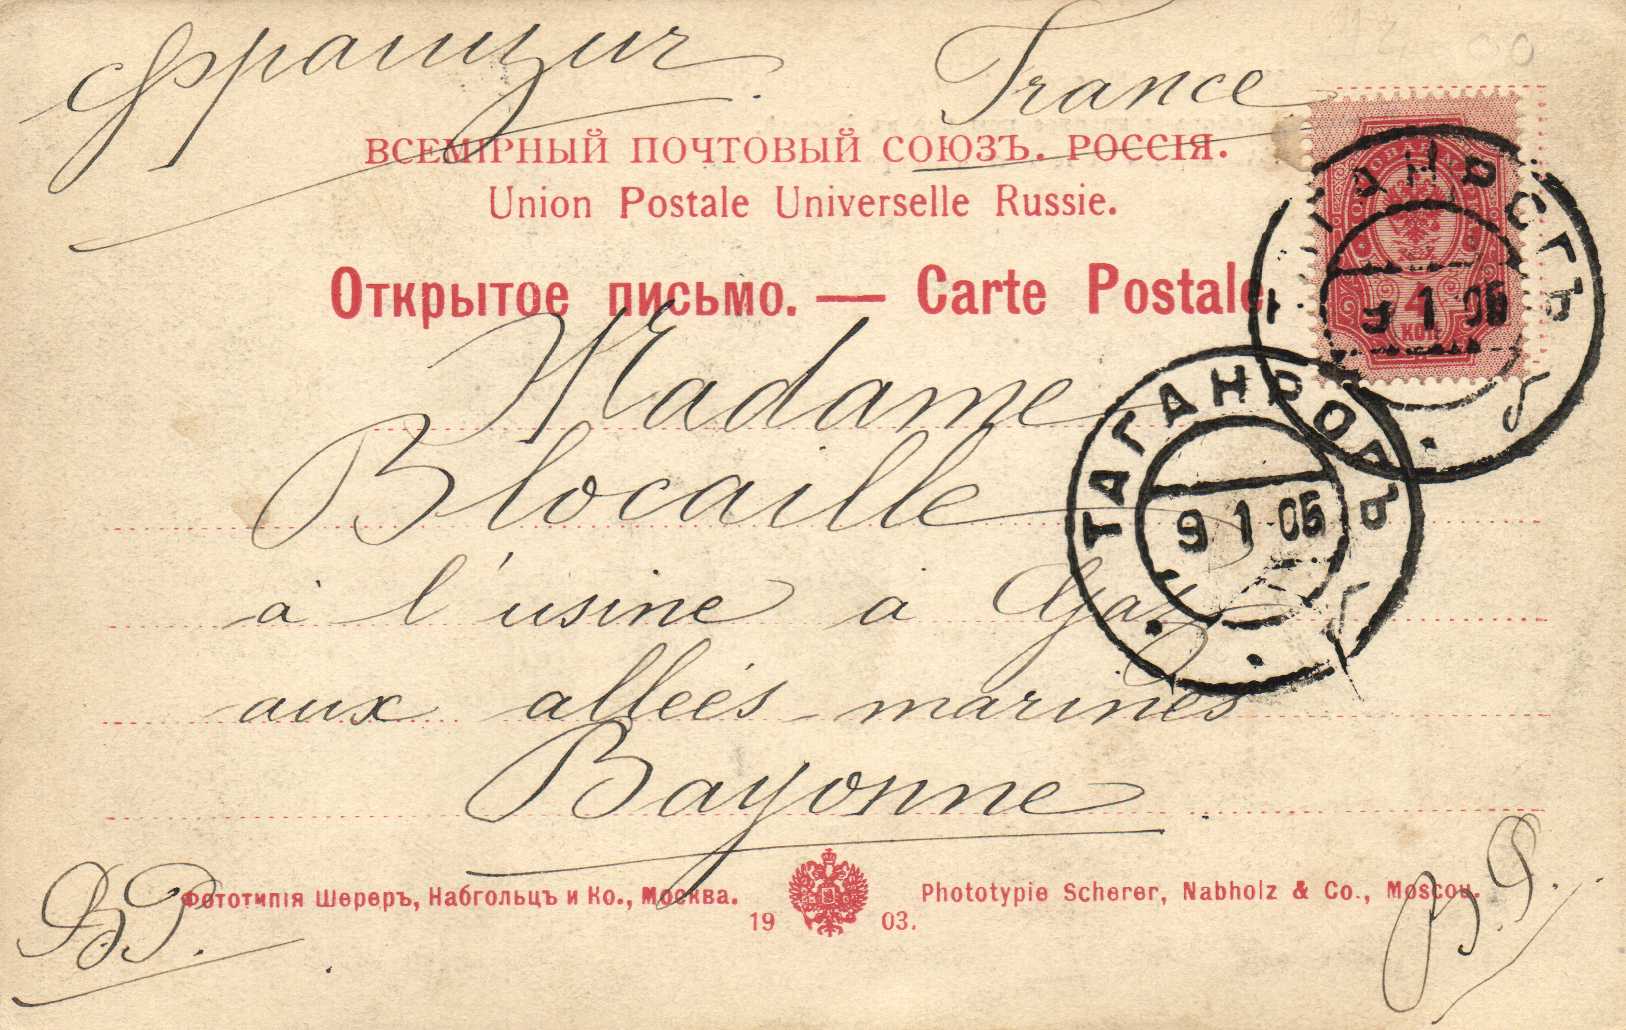 Францiя. France
ВСЕМIРНЫЙ ПОЧТОВЫЙ СОЮЗЪ. РОССIЯ.
Union Postale Universelle Russie.
Открытое письмо. — Carte Postale
4
КОП
ТАГАНРОГЪ
9 1 05
ТАГАНРОГЪ
9 1 05
Madame
Blocaille
à l'usine à Gaz
aux alleés marines
Bayonne
Фототипiя Шереръ, Набгольцъ и Ко., Москва.
1903.
Phototypie Scherer, Nabholz & Co., Moscou.